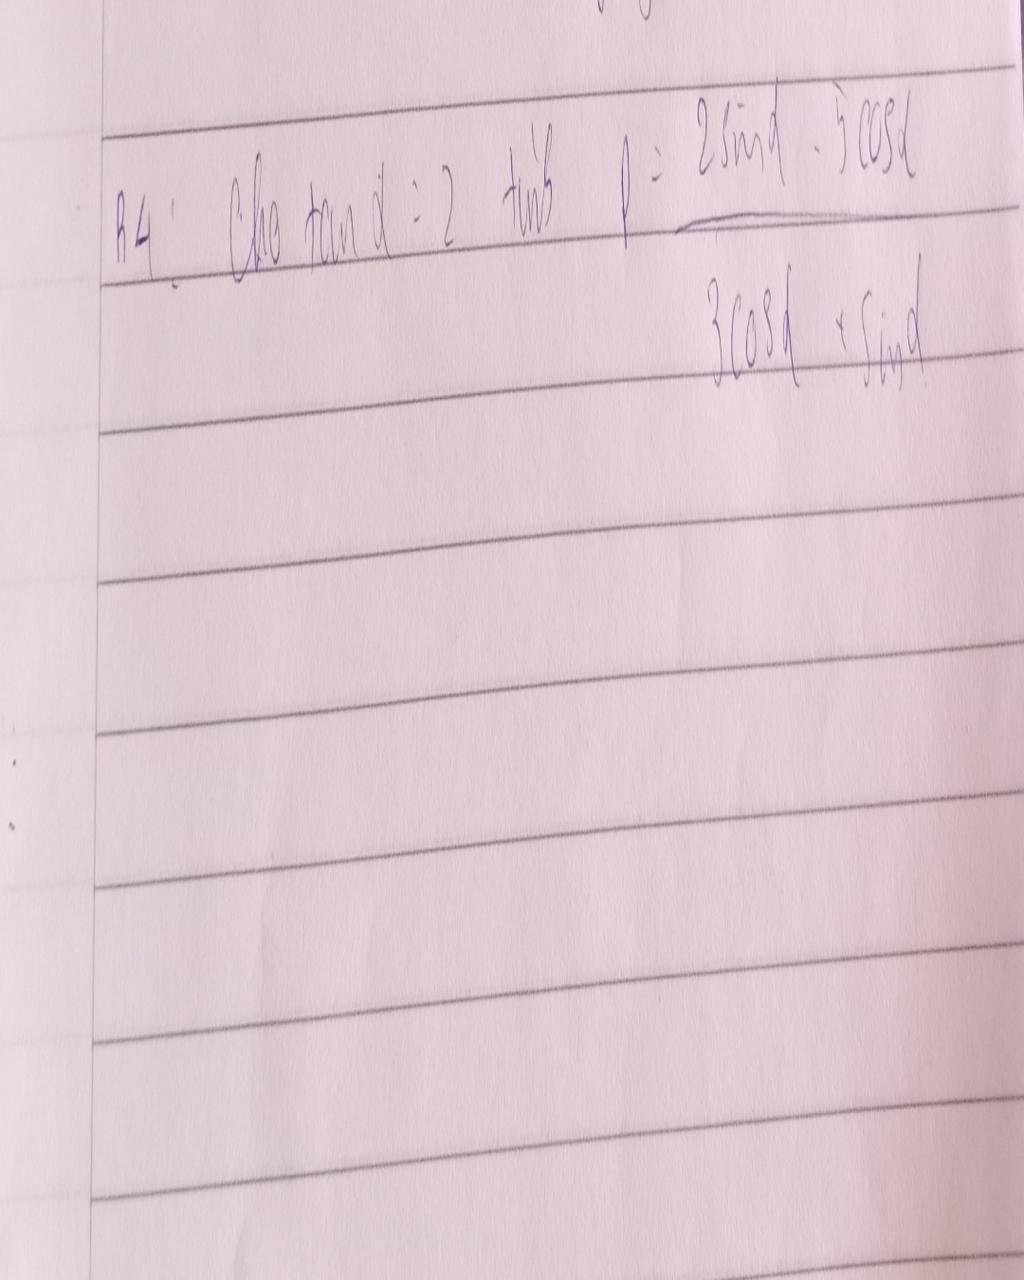 B4: Cho tan α = 2 tính P = 2 sin α - 5 cos α
3 cos α + sin α